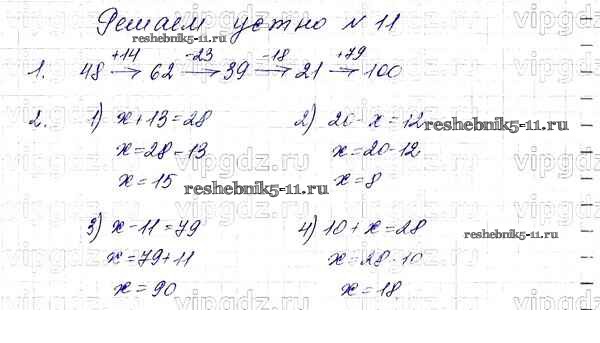 Решаем устно № 11
reshebnik5-11.ru
+14 -23 -18 +79
1. 48 → 62 → 39 → 21 → 100
2. 1) x + 13 = 28 2) 20 - x = 12
reshebnik5-11.ru
x = 28 - 13 x = 20 - 12
x = 15 x = 8
reshebnik5-11.ru
3) x - 11 = 79 4) 10 + x = 28
reshebnik5-11.ru
x = 79 + 11 x = 28 - 10
x = 90 x = 18
vipgdz.ru vipgdz.ru vipgdz.ru